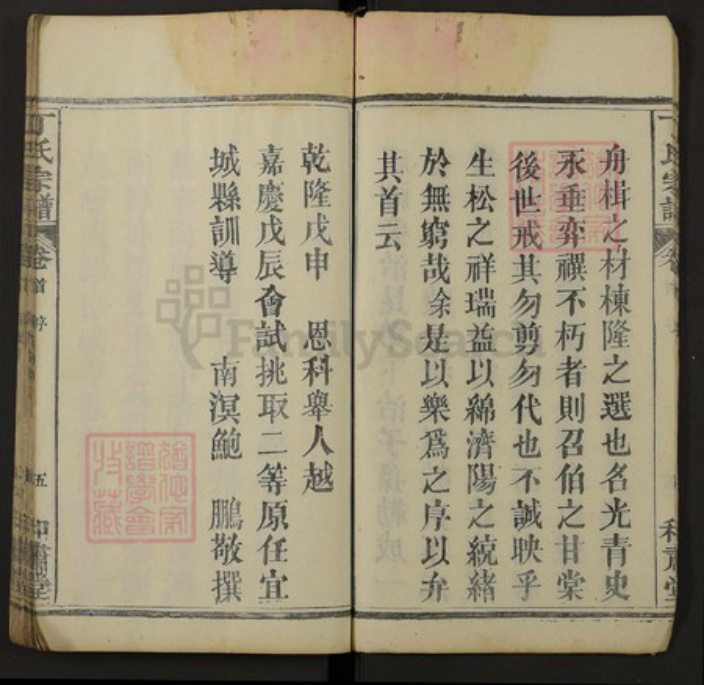 舟楫之材棟隆之選也名光青史
永垂弈禩不朽者則召伯之甘棠
後世戒其勿剪勿伐也不誠映乎
生松之祥瑞益以綿濟陽之統緒
於無窮哉余是以樂為之序以弁
其首云
乾隆戊申 恩科舉人越
嘉慶戊辰會試挑取二等原任宜
城縣訓導 南溟鮑 鵬敬撰
丁氏宗譜
卷首 序
五
FamilySearch